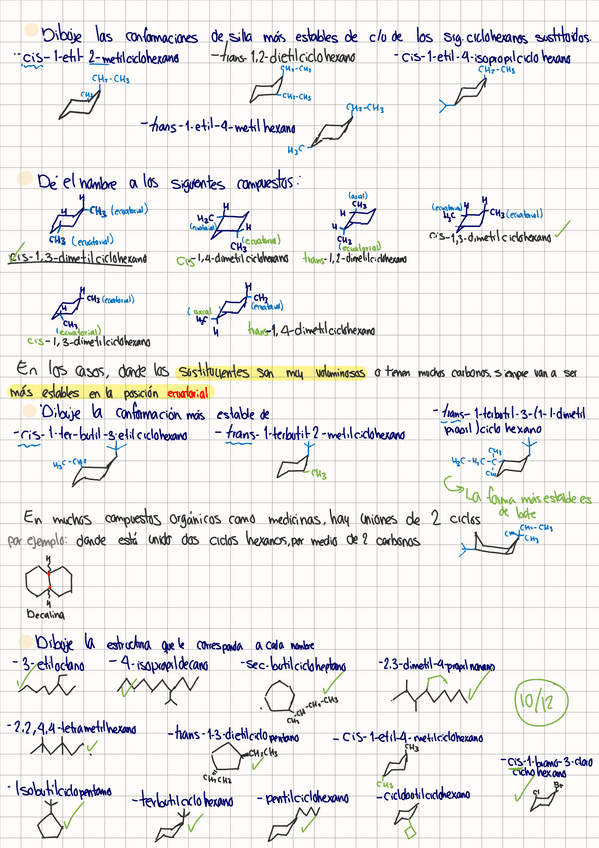 Dibuje las conformaciones de silla más estables de c/o de los sig. ciclohexanos sustituidos.
-cis-1-etil-2-metilciclohexano
-trans-1,2-dietilciclohexano
-cis-1-etil-4-isopropilciclohexano
CH2-CH3
CH3
CH2-CH3
CH2-CH3
CH2-CH3
-trans-1-etil-4-metilhexano
CH2-CH3
H3C
Dé el nombre a los siguientes compuestos:
H H CH3 (ecuatorial)
CH3 (ecuatorial)
cis-1,3-dimetilciclohexano
H H3C (ecuatorial) H
CH3 (ecuatorial)
cis-1,4-dimetilciclohexano
(axial)
CH3
H H
CH3
(ecuatorial)
trans-1,2-dimetilciclohexano
(ecuatorial) H H
H3C CH3 (ecuatorial)
cis-1,3-dimetilciclohexano
H CH3 (ecuatorial)
CH3
(ecuatorial)
cis-1,3-dimetilciclohexano
(axial H CH3
H3C (ecuatorial)
H
trans-1,4-dimetilciclohexano
En los casos, donde los sustituyentes son muy voluminosos o tienen muchos carbonos, siempre van a ser
más estables en la posición ecuatorial
Dibuje la conformación más estable de
-cis-1-ter-butil-3-etilciclohexano
-trans-1-terbutil-2-metilciclohexano
-trans-1-terbutil-3-(1-1-dimetil
propil)ciclohexano
H3C-CH2
CH3
CH3
H3C-H2C-C
CH3
La forma más estable es
de bote
CH3 CH2-CH3
CH3
En muchos compuestos orgánicos como medicinas, hay uniones de 2 ciclos
por ejemplo: donde está unido dos ciclos hexanos, por medio de 2 carbonos
H
H
Decalina
Dibuje la estructura que le corresponda a cada nombre
-3-etiloctano
-4-isopropildecano
-sec-butilcicloheptano
-2,3-dimetil-4-propilnonano
CH-CH2-CH3
CH3
10/12
-2,2,4,4-tetrametilhexano
-trans-1-3-dietilciclopentano
-cis-1-etil-4-metilciclohexano
CH2CH3
CH2CH3
CH3
CH3
-cis-1-bromo-3-cloro
ciclohexano
Cl Br
-Isobutilciclopentano
-terbutilciclohexano
-pentilciclohexano
-ciclobutilciclohexano